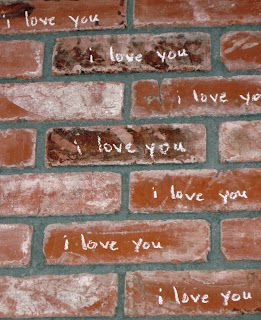 i love you
i love you
i love yo
i love you
i love you
i love you
i love you